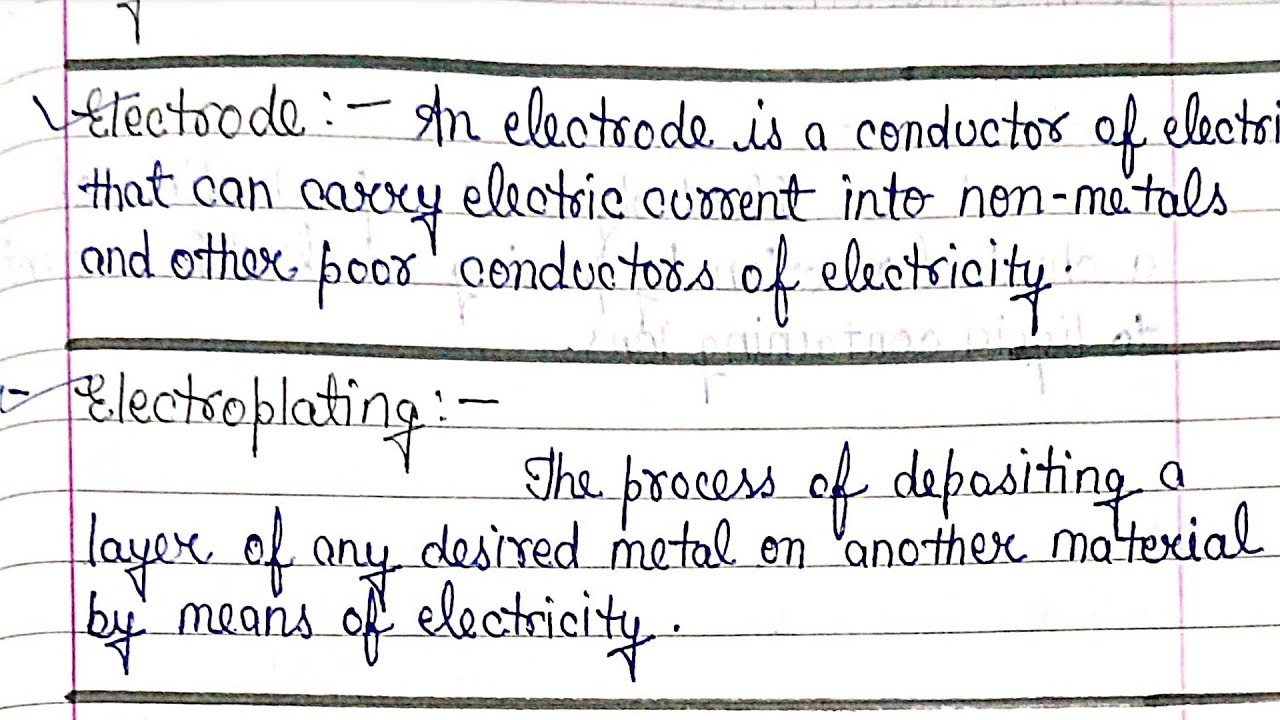 Electrode :- An electrode is a conductor of electri
that can carry electric current into non-metals
and other poor conductors of electricity.
Electroplating :-
The process of depositing a
layer of any desired metal on another material
by means of electricity.